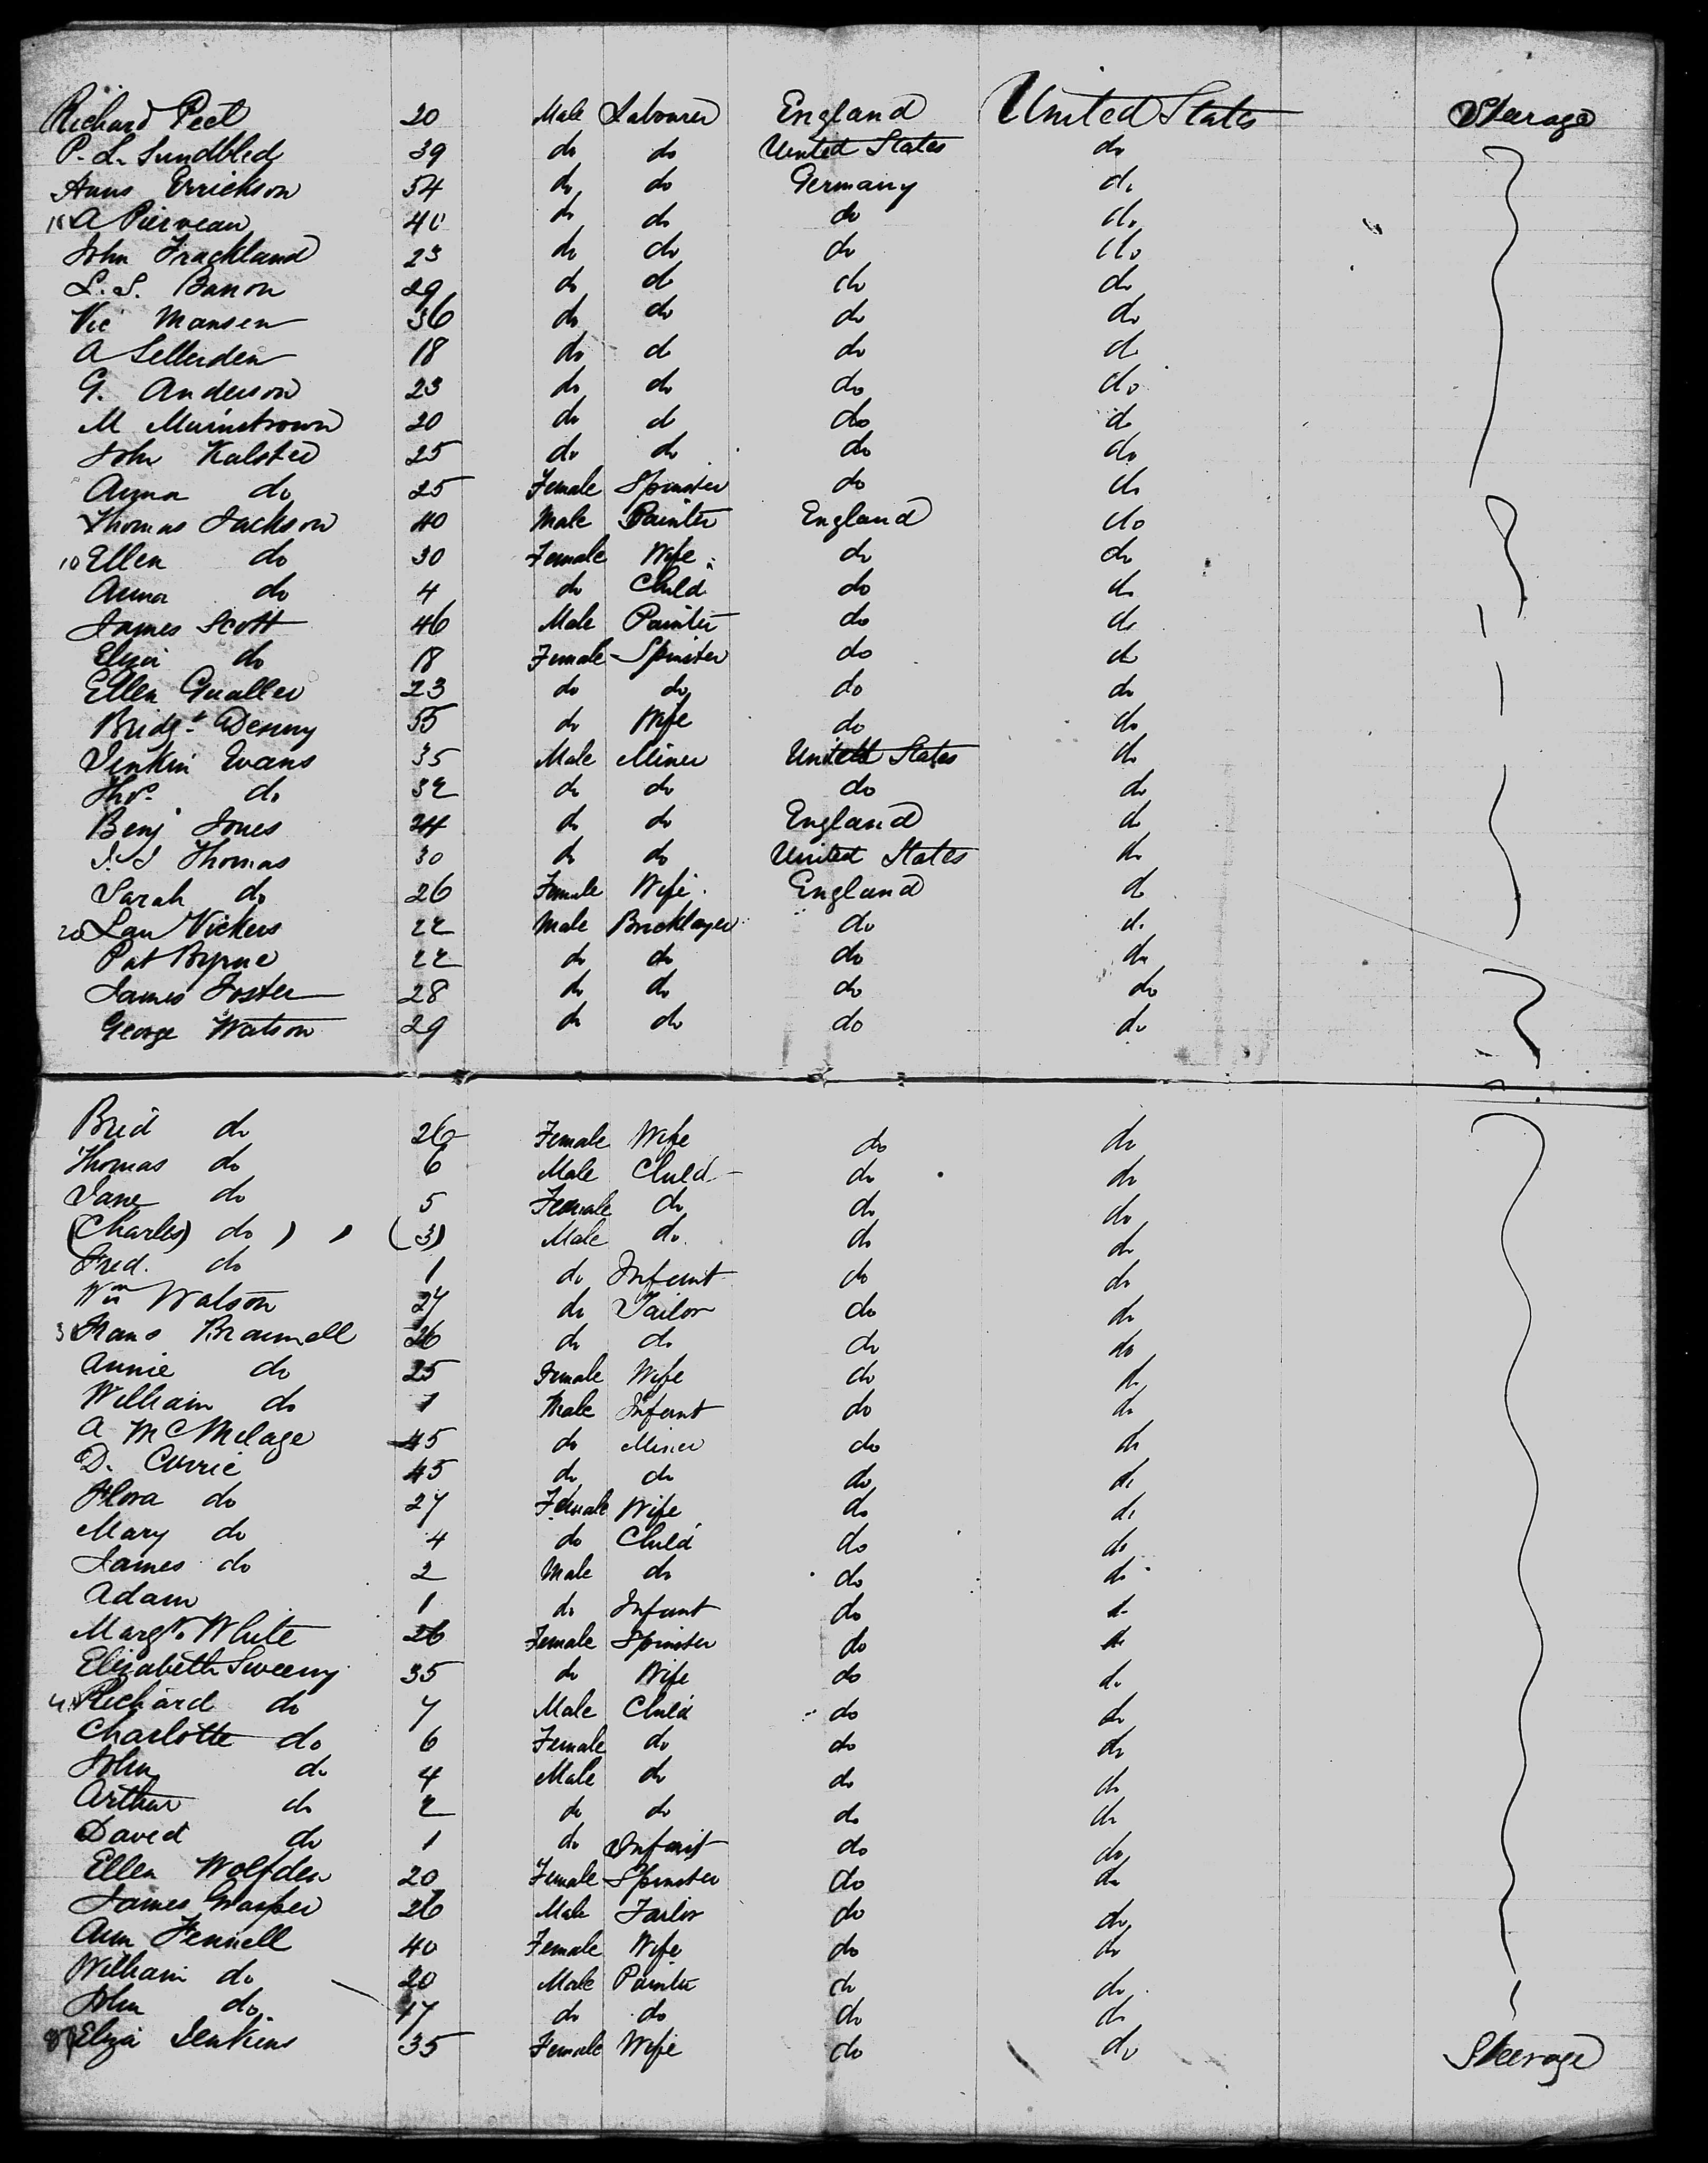 Richard Peel 20 Male Labourer England United States Steerage
P. L. Sundbled 39 do do United States do
Hans Errickson 34 do do Germany do
A Pierveau 40 do do do do
John Frackland 23 do do do do
L. S. Banon 29 do do do do
Vic Mansen 36 do do do do
A Sellerden 18 do do do do
G. Anderson 23 do do do do
M 20 do do do do
John Kalsted 25 do do do do
Anna do 25 Female Spinster do do
Thomas Jackson 40 Male Painter England do
10 Ellen do 30 Female Wife do do
Anna do 4 do Child do do
James Scott 46 Male Painter do do
Eliza do 18 Female Spinster do do
Ellen Gualler 23 do do do do
Bridgt Denny 55 do Wife do do
Jenkin Evans 35 Male Miner United States do
Thos. do 32 do do do do
Benj Jones 24 do do England do
J. J Thomas 30 do do United States do
Sarah do 26 Female Wife England do
20 Lau Vickers 22 Male Bricklayer do do
Pat Byrne 22 do do do do
James Foster 28 do do do do
George Watson 29 do do do do
Brid do 26 Female Wife do do
Thomas do 6 Male Child do do
Jane do 5 Female do do do
(Charles) do ) (3) Male do do do
Fred. do 1 do Infant do do
Wm Watson 27 do Tailor do do
Frans Braumell 26 do do do do
Annie do 25 Female Wife do do
William do 1 Male Infant do do
A McMelage 45 do Miner do do
D. Currie 45 do do do do
Flora do 27 Female Wife do do
Mary do 4 do Child do do
James do 2 Male do do do
Adam 1 do Infant do do
Margt. White 26 Female Spinster do do
Elizabeth Sweeny 35 do Wife do do
Richard do 7 Male Child do do
Charlotte do 6 Female do do do
John do 4 Male do do do
Arthur do 2 do do do do
David do 1 do Infant do do
Ellen Wolfden 20 Female Spinster do do
James Grasper 26 Male Tailor do do
Ann Fennell 40 Female Wife do do
William do 20 Male Painter do do
John do 17 do do do do
Eliza Jenkins 35 Female Wife do do Steerage